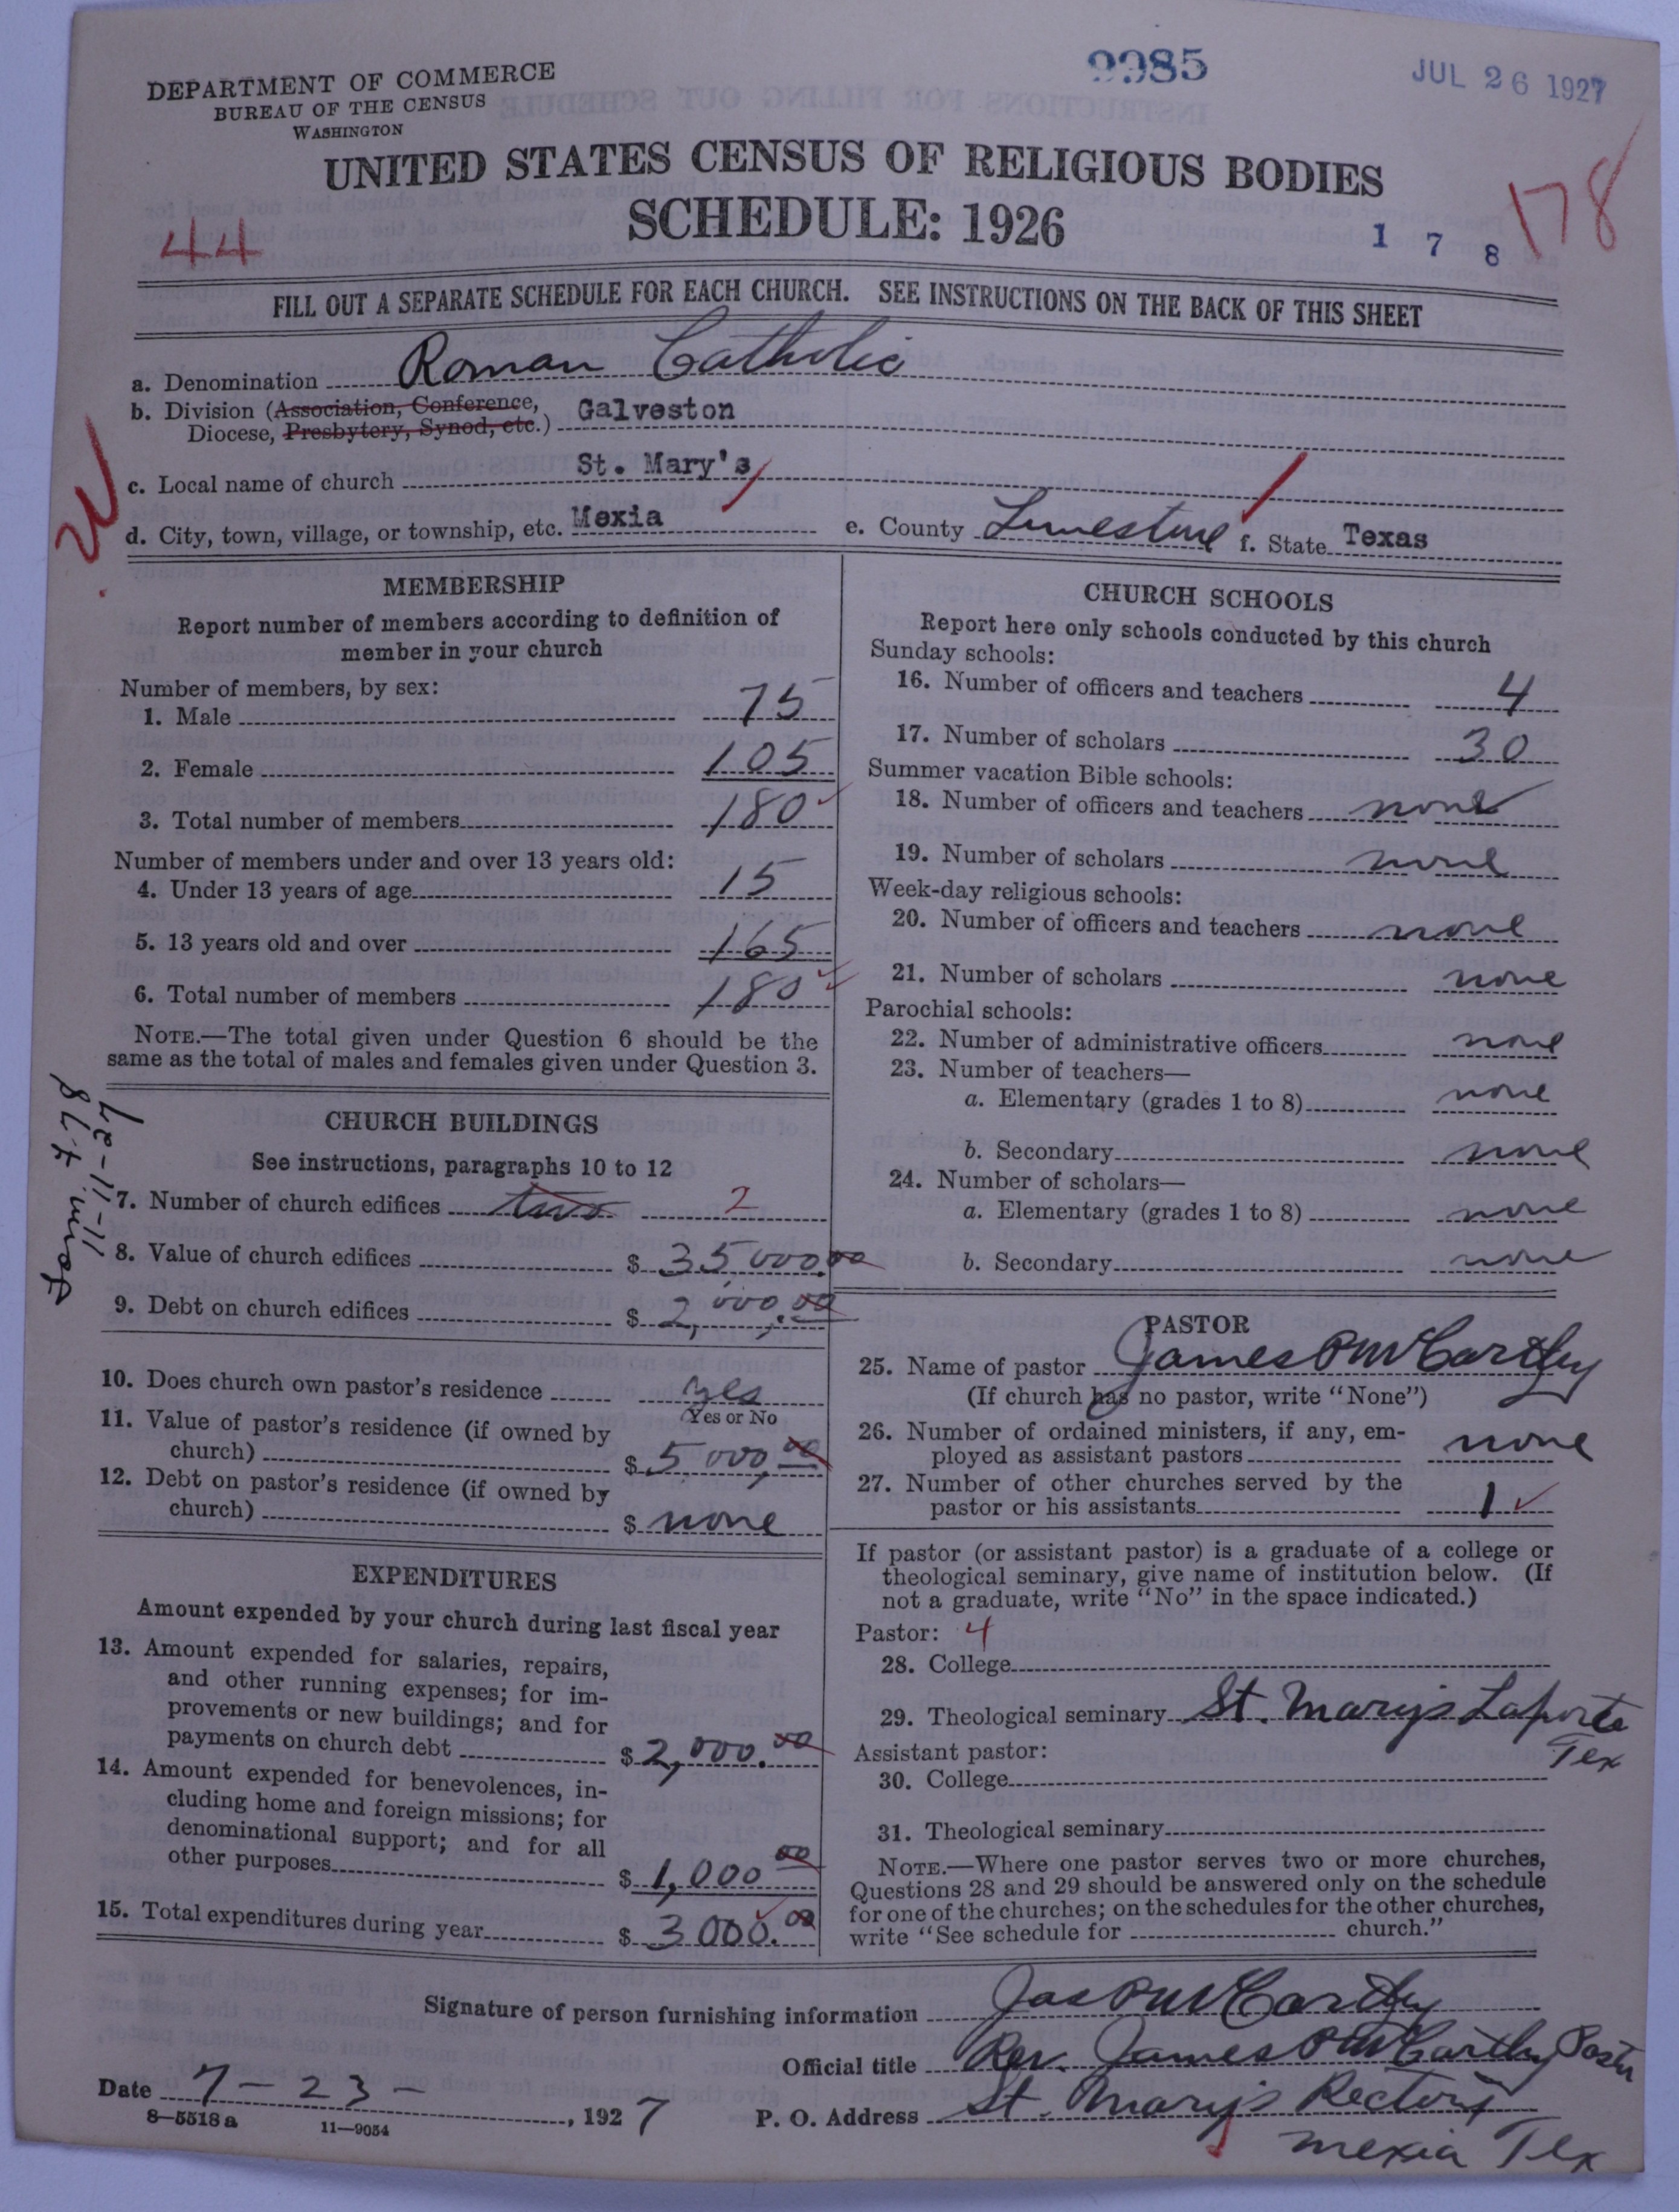 DEPARTMENT OF COMMERCE
BUREAU OF THE CENSUS
WASHINGTON
9985
JUL 26 1927
UNITED STATES CENSUS OF RELIGIOUS BODIES
SCHEDULE: 1926
44
1 7 8
178
FILL OUT A SEPARATE SCHEDULE FOR EACH CHURCH. SEE INSTRUCTIONS ON THE BACK OF THIS SHEET
a. Denomination Roman Catholic
b. Division (Association, Conference,
Diocese, Presbytery, Synod, etc.) Galveston
c. Local name of church St. Mary's
d. City, town, village, or township, etc. Mexia e. County Limestone f. State Texas
MEMBERSHIP
Report number of members according to definition of
member in your church
Number of members, by sex:
1. Male 75
2. Female 105
3. Total number of members 180
Number of members under and over 13 years old:
4. Under 13 years of age 15
5. 13 years old and over 165
6. Total number of members 180
NOTE.—The total given under Question 6 should be the
same as the total of males and females given under Question 3.
CHURCH BUILDINGS
See instructions, paragraphs 10 to 12
7. Number of church edifices two 2
8. Value of church edifices $ 35,000.00
9. Debt on church edifices $ 2,000.00
10. Does church own pastor's residence yes
Yes or No
11. Value of pastor's residence (if owned by
church) $ 5000,00
12. Debt on pastor's residence (if owned by
church) $ none
EXPENDITURES
Amount expended by your church during last fiscal year
13. Amount expended for salaries, repairs,
and other running expenses; for im-
provements or new buildings; and for
payments on church debt $ 2,000.00
14. Amount expended for benevolences, in-
cluding home and foreign missions; for
denominational support; and for all
other purposes $ 1,000 00
15. Total expenditures during year $ 3000.00
11-11-27
CHURCH SCHOOLS
Report here only schools conducted by this church
Sunday schools:
16. Number of officers and teachers 4
17. Number of scholars 30
Summer vacation Bible schools:
18. Number of officers and teachers none
19. Number of scholars none
Week-day religious schools:
20. Number of officers and teachers none
21. Number of scholars none
Parochial schools:
22. Number of administrative officers none
23. Number of teachers—
a. Elementary (grades 1 to 8) none
b. Secondary none
24. Number of scholars—
a. Elementary (grades 1 to 8) none
b. Secondary none
PASTOR
25. Name of pastor James P McCarthy
(If church has no pastor, write "None")
26. Number of ordained ministers, if any, em-
ployed as assistant pastors none
27. Number of other churches served by the
pastor or his assistants 1
If pastor (or assistant pastor) is a graduate of a college or
theological seminary, give name of institution below. (If
not a graduate, write "No" in the space indicated.)
Pastor: 4
28. College
29. Theological seminary St. Marys Laporte
Tex
Assistant pastor:
30. College
31. Theological seminary
NOTE.—Where one pastor serves two or more churches,
Questions 28 and 29 should be answered only on the schedule
for one of the churches; on the schedules for the other churches,
write "See schedule for church."
Signature of person furnishing information Jas P McCarthy
Official title Rev. James P McCarthy Pastor
Date 7-23-, 1927 P. O. Address St. Marys Rectory
Mexia Tex
8—5518a 11—9054